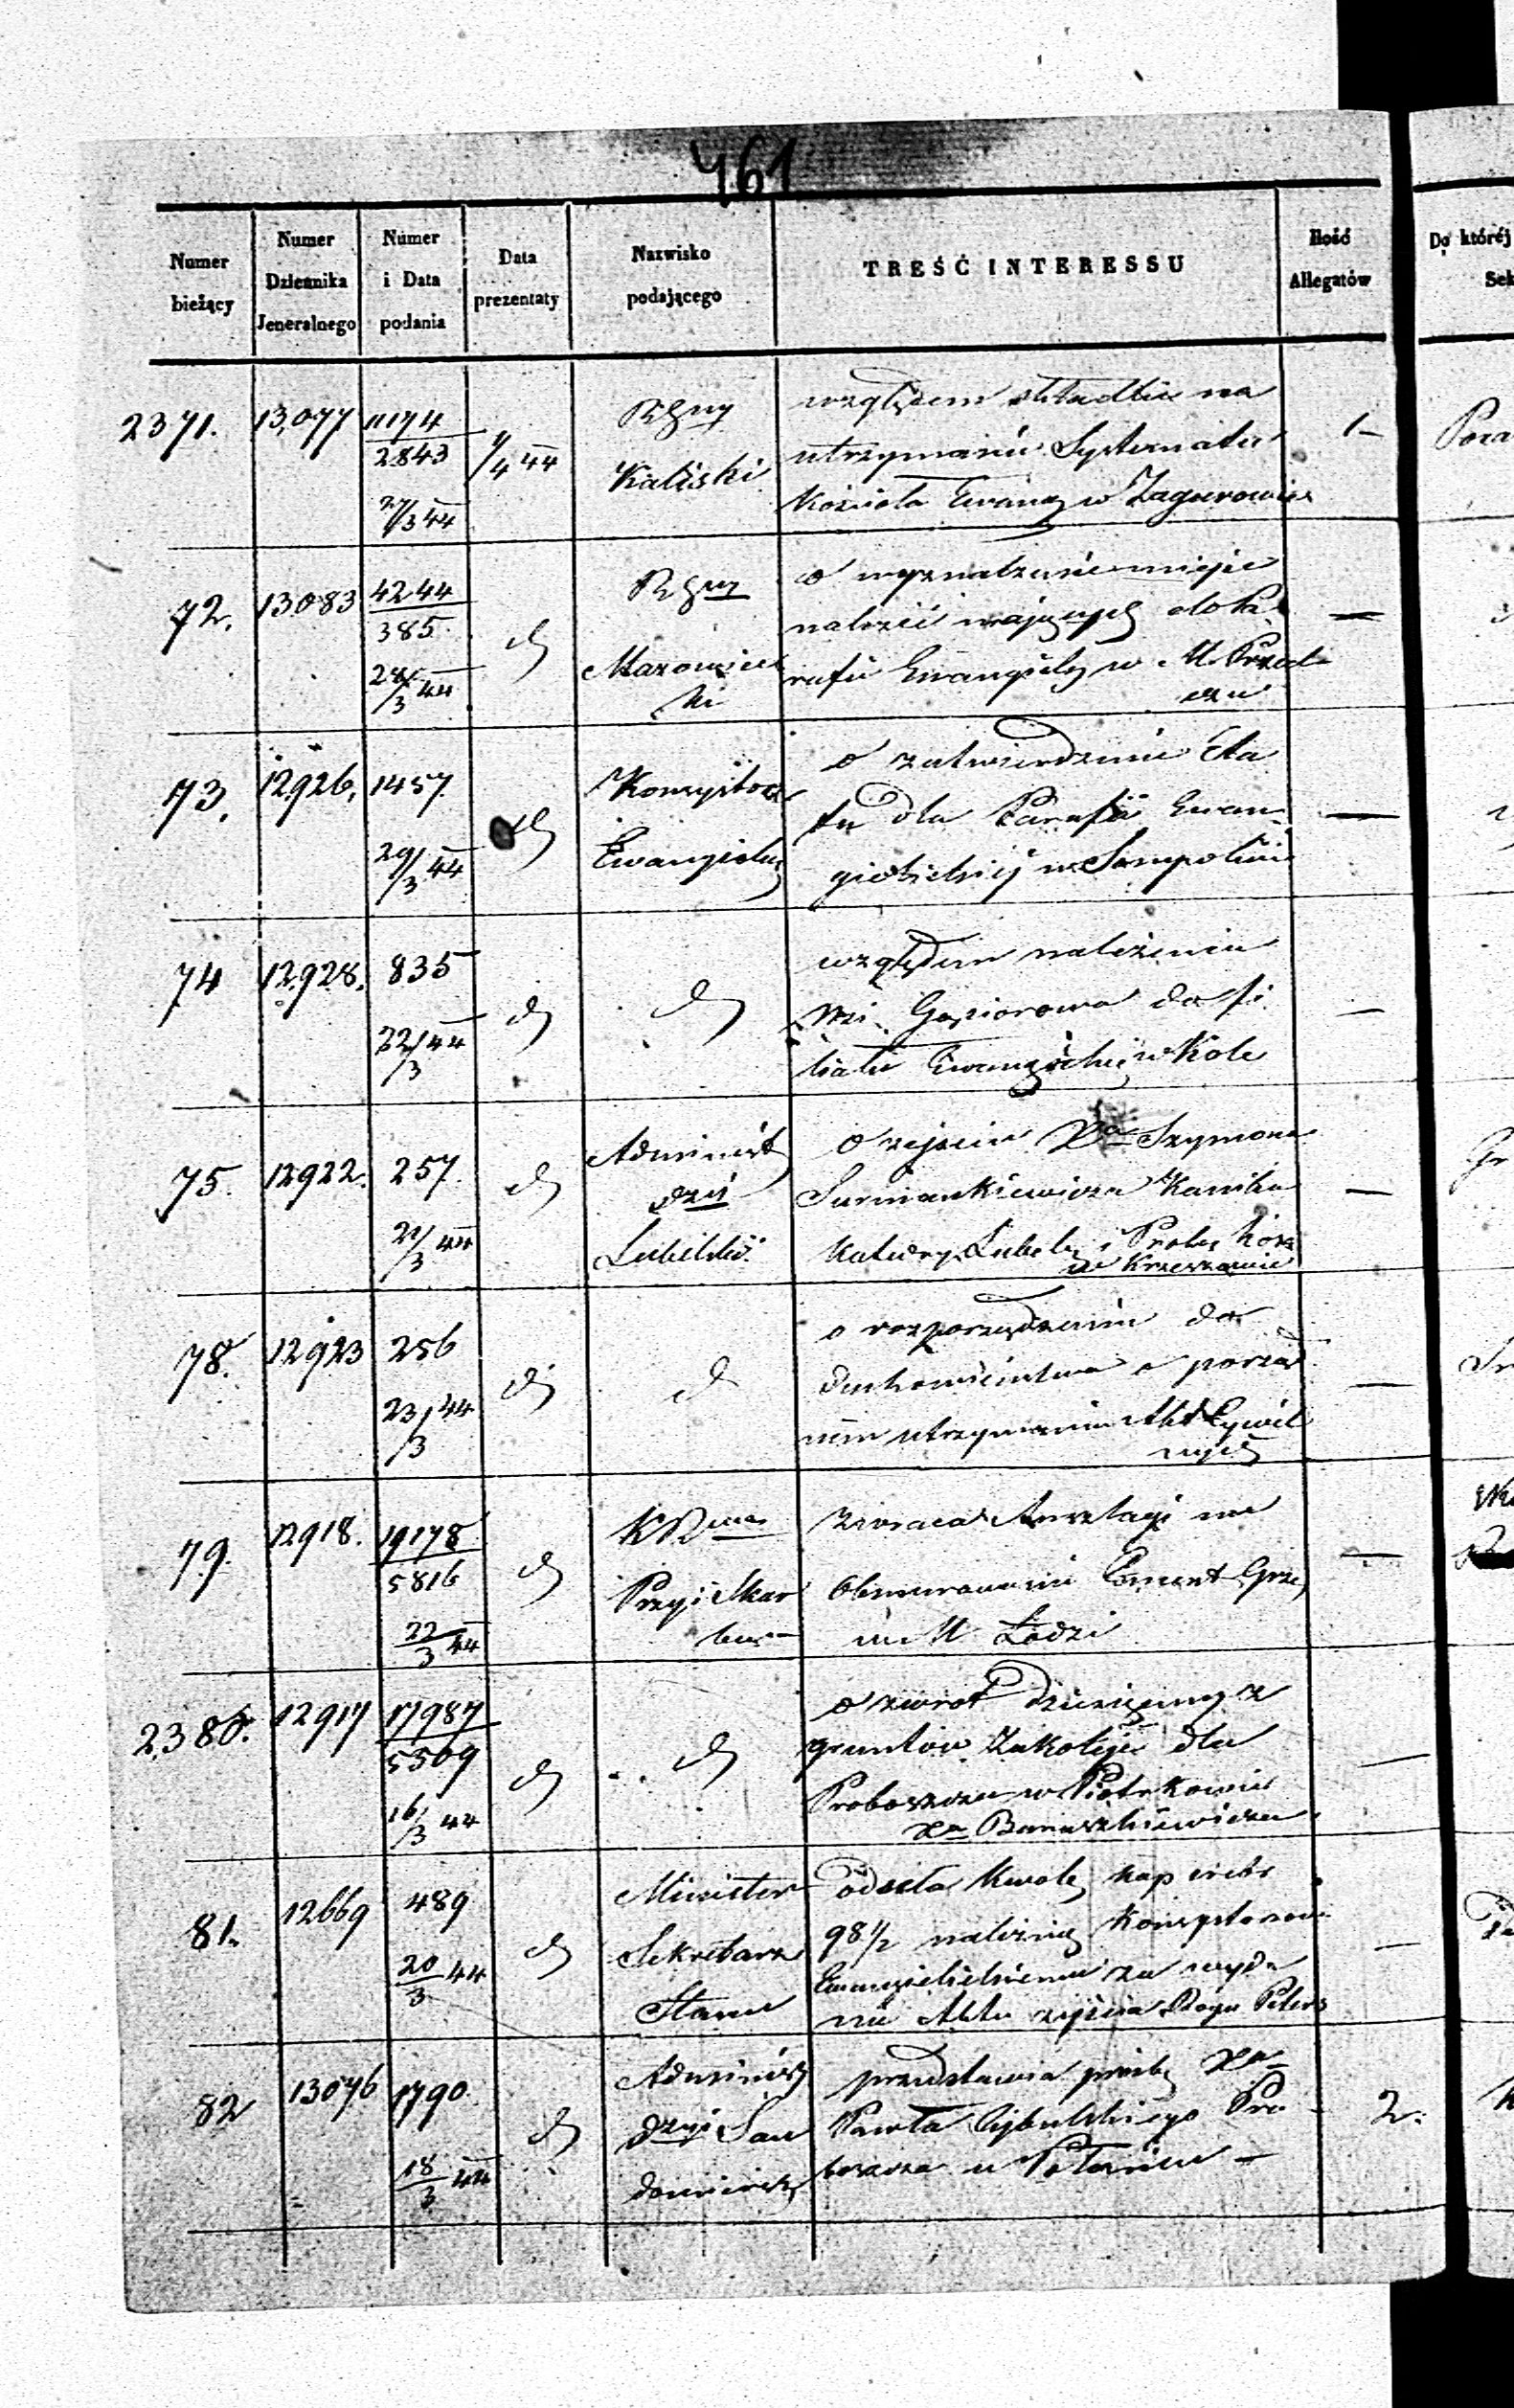 461
Numer bieżący
Numer Dziennika Jeneralnego
Numer i Data podania
Data prezentaty
Nazwisko podającego
TREŚĆ INTERESSU
Ilość Allegatów
Do któréj
Sek
2371. 13,077 11174 2843 27/3 44 4/4 44
Kaliski
względem składki na
utrzymanie Systemata
kościoła Ewang w Zagurowie
1-
72. 13083 4244 385 28/3 44
Mazowiec
ki
o wyznaczenie miejsc
należeć mających do Pa
rafii Ewangiely w M. Przed
czu
—
73. 12926. 1457 29/3 44
Konsystorz
Ewangielic
o zatwierdzenie Eta
tu dla Parafii Ewan
gielickiej w Sompolnie
—
74 12928. 835 22/3 44
względem należenia
Wsi Gąsiorowa do fi
liału Ewangelic w Kole
—
75. 12922. 257. 21/3 44
Administ
Dziej
Lubelski
o zejściu Xa Szymona
Surmankiewicza Kanonika
Katedry Lubel i Prob
w Krzeszowie
—
78. 12923 256 23/3 44
o rozporządzenie do
Duchowieństwa o porząd
nem utrzymaniu Akt Cywil
nych
—
79. 12918. 19178 5816 22/3 44
KR
Przyi Skar
bu
zwraca Anszlagi na
Obmurowanie Cment Grze
w M Łodzi
—
2380. 12917 17987 5569 16/3 44
o zwrot dziesięciny z
gruntów Zakoleje dla
Proboszcza w Piotrkowie
Xa Banaszkiewicza
—
81. 12669 489 20/3 44
Minister
Sekretarz
Stanu
odseła kwotę kop srebr
98 1/2 należną Konsystorzowi
Ewangielickiemu za wyda
nie Aktu zejścia Peters
—
82 13076 1790. 18/3 44
Administ
Dzyi San
domirsk
przedstawia prośbę Xa
Pawła Cybulskiego Pro
boszcza w
2.